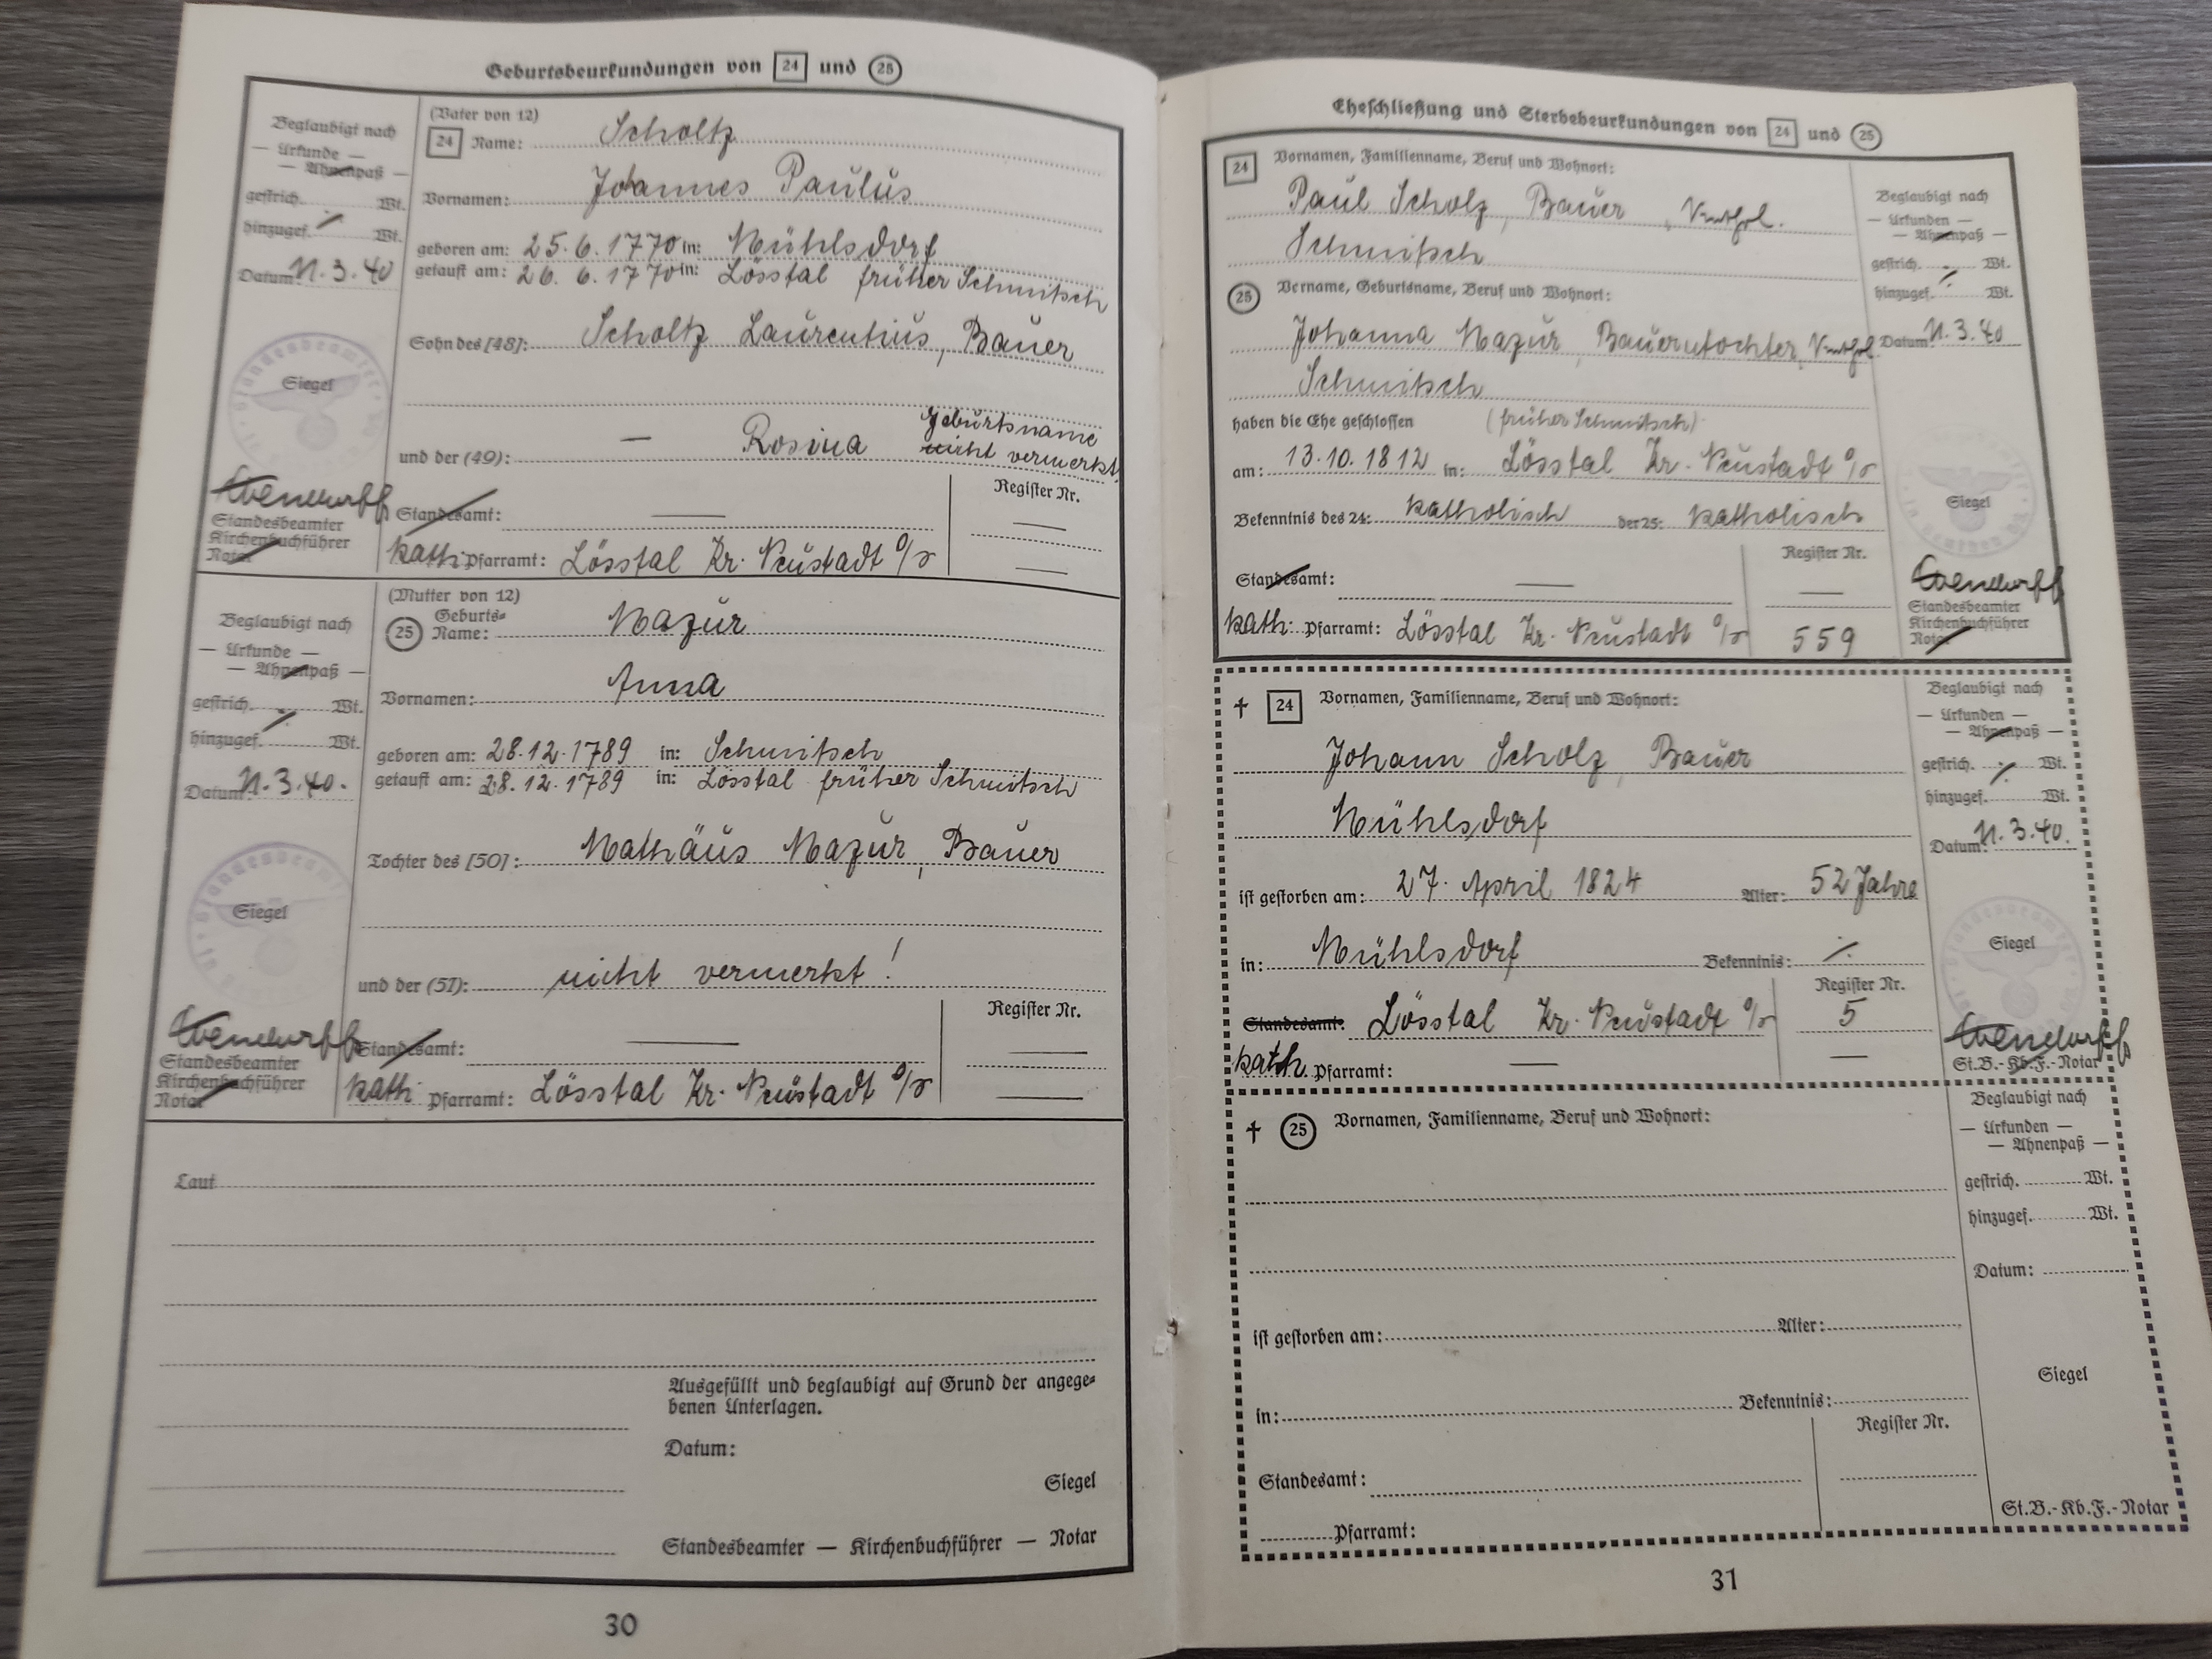 Geburtsbeurkundungen von 24 und 25
Beglaubigt nach
— Urkunde —
— Ahnenpaß —
gestrich. Wt.
hinzugef. Wt.
Datum: 11.3.40
Siegel
Standesbeamter
Kirchenbuchführer
Notar
(Vater von 12)
24 Name: Scholtz
Vornamen: Johannes Paulus
geboren am: 25.6.1770 in: Mühlsdorf
getauft am: 26.6.1770 in: Lösstal früher Schmitsch
Sohn des [48]: Scholtz Laurentius, Bauer
und der (49): — Rosina Geburtsname
nicht vermerkt
Standesamt: —
Register Nr.
—
kath. Pfarramt: Lösstal Kr. Neustadt O/S
—
Beglaubigt nach
— Urkunde —
— Ahnenpaß —
gestrich. Wt.
hinzugef. Wt.
Datum: 11.3.40.
Siegel
Standesbeamter
Kirchenbuchführer
Notar
(Mutter von 12)
25 Geburts=
Name: Mazur
Vornamen: Anna
geboren am: 28.12.1789 in: Schmitsch
getauft am: 28.12.1789 in: Lösstal früher Schmitsch
Tochter des [50]: Mathäus Mazur, Bauer
und der (51): nicht vermerkt!
Standesamt: —
Register Nr.
—
kath. Pfarramt: Lösstal Kr. Neustadt O/S
—
Laut
Ausgefüllt und beglaubigt auf Grund der angege=
benen Unterlagen.
Datum:
Siegel
Standesbeamter — Kirchenbuchführer — Notar
30
Eheschließung und Sterbebeurkundungen von 24 und 25
24 Vornamen, Familienname, Beruf und Wohnort:
Paul Scholz, Bauer,
Schmitsch
25 Vorname, Geburtsname, Beruf und Wohnort:
Johanna Mazur, Bauerntochter,
Schmitsch
haben die Ehe geschlossen (früher Schmitsch)
am: 13.10.1812 in: Lösstal Kr. Neustadt O/S
Bekenntnis des 24: katholisch der 25: katholisch
Standesamt: —
Register Nr.
—
kath. Pfarramt: Lösstal Kr. Neustadt O/S
559
Beglaubigt nach
— Urkunden —
— Ahnenpaß —
gestrich. Wt.
hinzugef. Wt.
Datum: 11.3.40
Siegel
Standesbeamter
Kirchenbuchführer
Notar
† 24 Vornamen, Familienname, Beruf und Wohnort:
Johann Scholz, Bauer
Mühlsdorf
ist gestorben am: 27. April 1824 Alter: 52 Jahre
in: Mühlsdorf Bekenntnis: ·/.
Register Nr.
Standesamt: Lösstal Kr. Neustadt O/S 5
kath. Pfarramt: — —
Beglaubigt nach
— Urkunden —
— Ahnenpaß —
gestrich. Wt.
hinzugef. Wt.
Datum: 11.3.40.
Siegel
St.B.-Kb.F.-Notar
† 25 Vornamen, Familienname, Beruf und Wohnort:
ist gestorben am: Alter:
in: Bekenntnis:
Register Nr.
Standesamt:
Pfarramt:
Beglaubigt nach
— Urkunden —
— Ahnenpaß —
gestrich. Wt.
hinzugef. Wt.
Datum:
Siegel
St.B.-Kb.F.-Notar
31